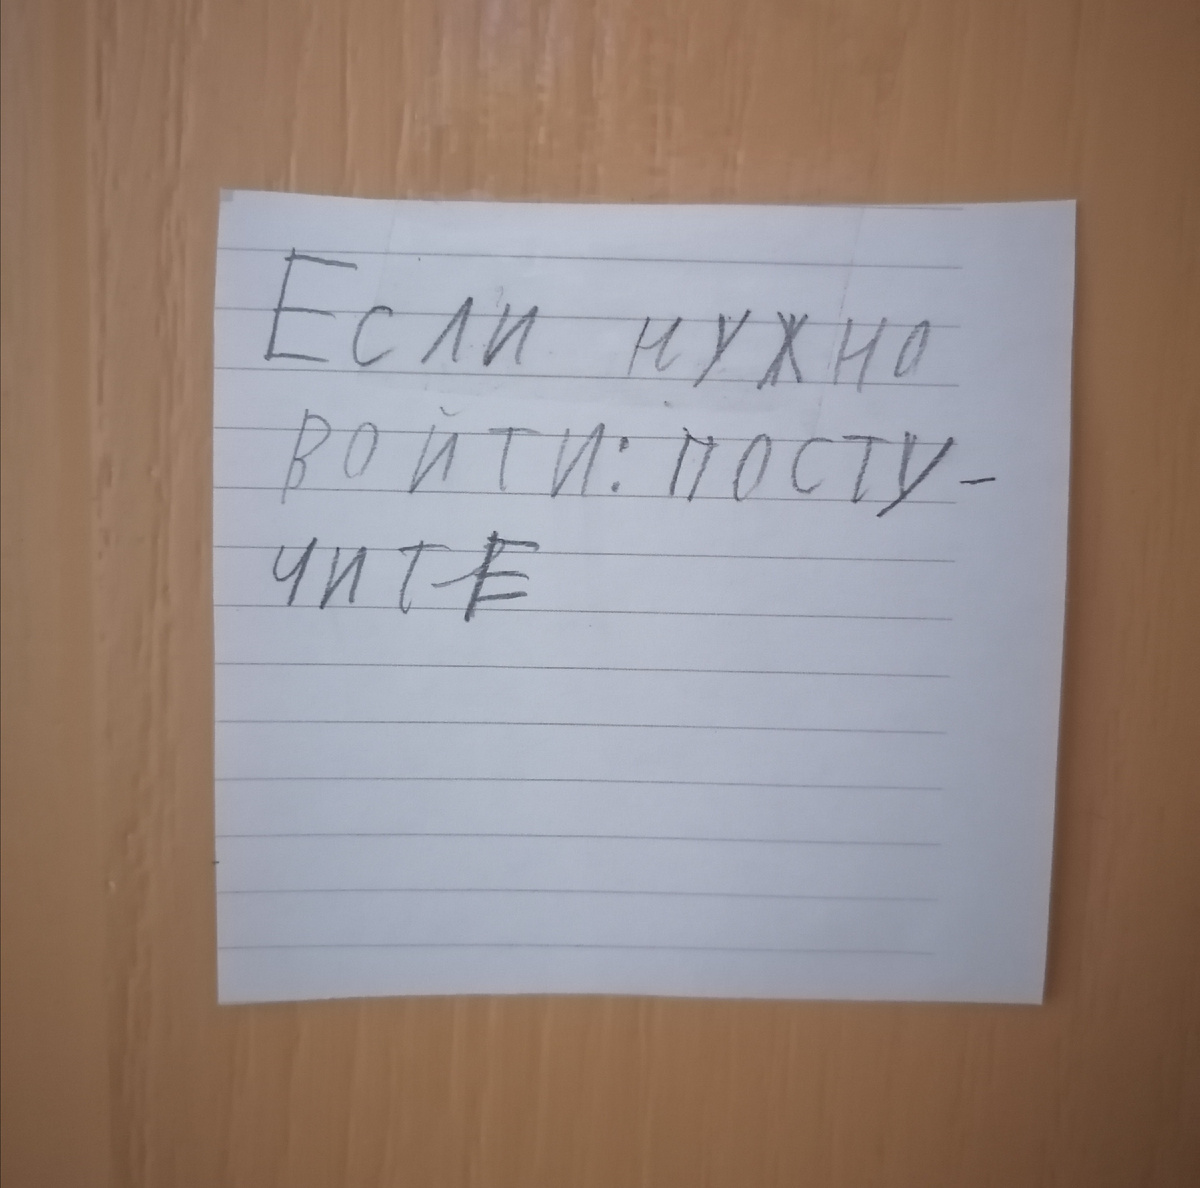 Если нужно
войти: посту-
читЕ